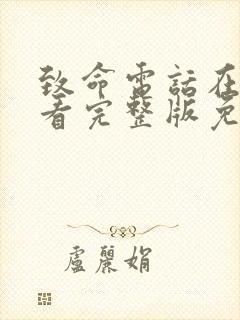 致命電話在
看完整版免
盧麗娟